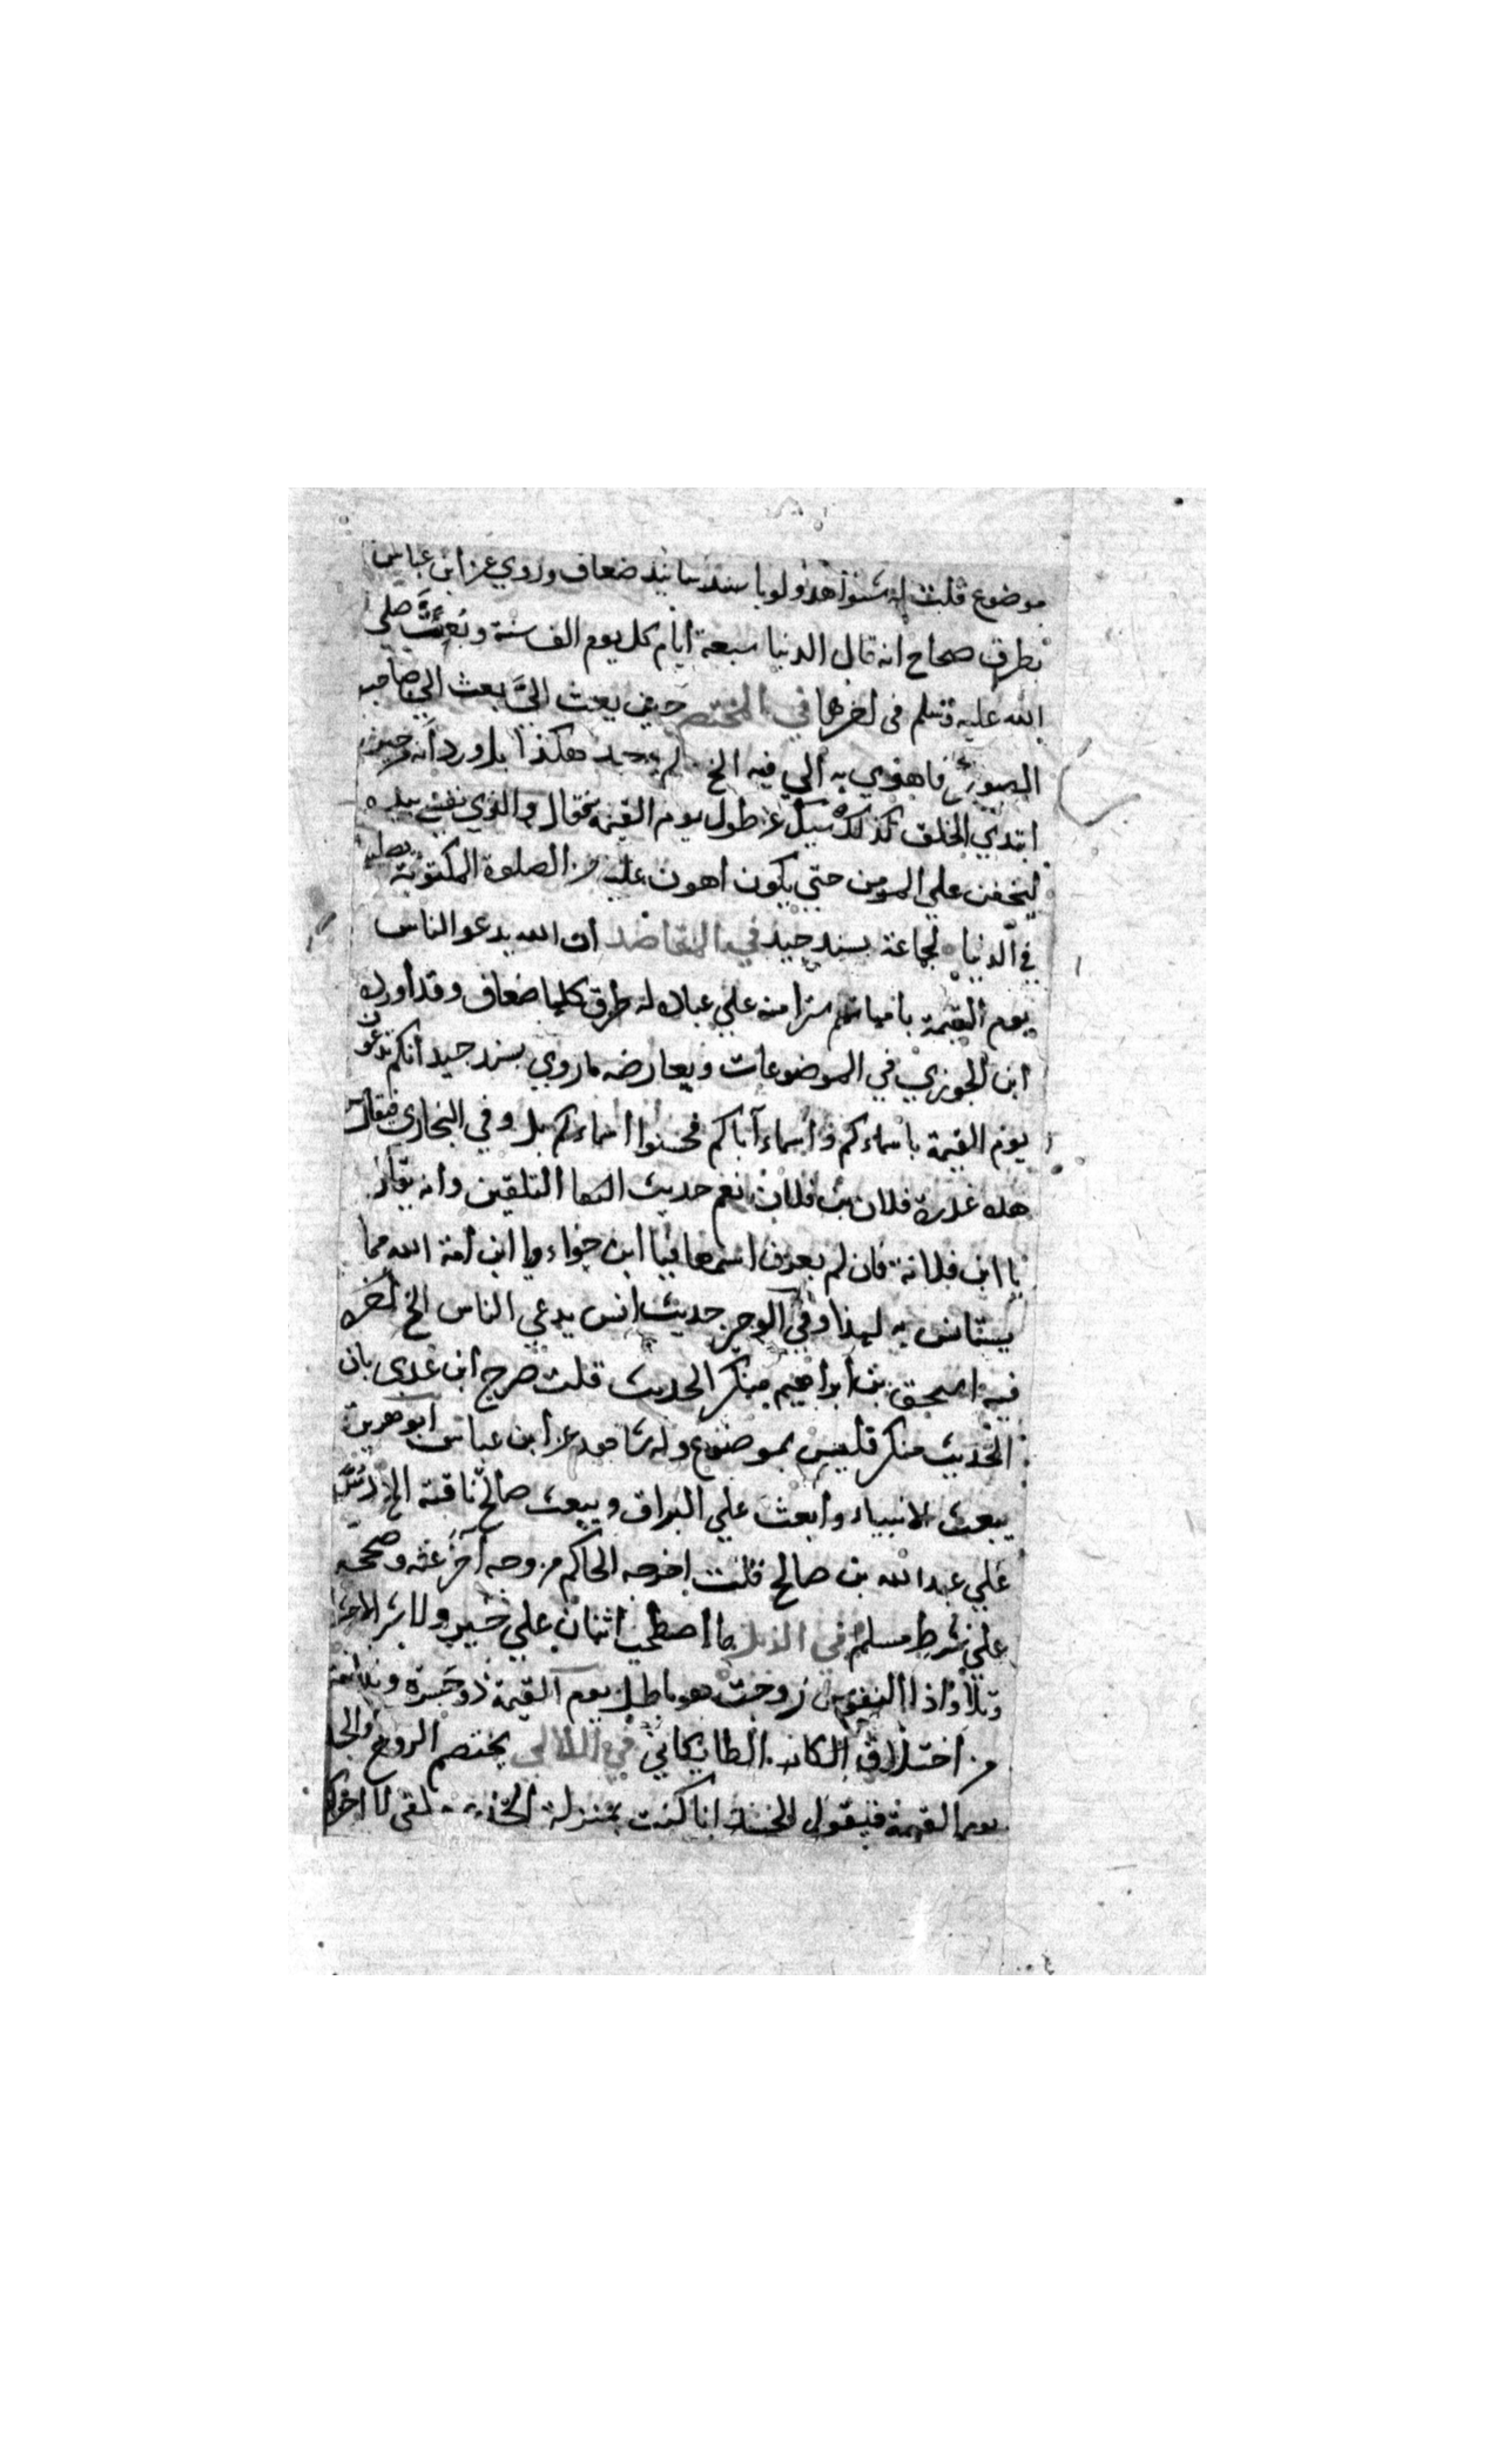 موضوع قلت له شواهد ولو باسند سانيد ضعاف وروي عن ابن عباس
بطرق صحاح انه قال الدنيا سبعة أيام كل يوم الف سنة وبعث صلى
الله عليه وسلم في اخرها في المختصر حين بعث اليّ بعث الي صاحب
الصور فاهوي به الي فيه الخ لم يوجد هكذا بل ورد انه من حين
ابتدي الخلق كذلك سيل عن طول يوم القيمة فقال والذي نفسي بيده
ليخفف علي المومن حتي يكون اهون عليه من الصلوة المكتوبة يصليها
في الدنيا لجماعة بسند جيد في المقاصد ان الله يدعو الناس
يوم القيمة بامهاتهم سترا منه علي عباده له طرق كلها ضعاف وقد أورده
ابن الجوزي في الموضوعات ويعارضه ما روي بسند جيد أنكم تدعون
يوم القيمة باسماءكم واسماء آباكم فحسنوا اسماءكم بل وفي البخاري فيقال
هذه غدرة فلان بن فلان نعم حديث التلقين وانه يقال
يا ابن فلانة فان لم يعرف اسمها فيا ابن حواء ويا ابن أمة الله مما
يستانس به لهذا وفي الوجيز حديث انس يدعي الناس الخ اخره
فيه اسحق بن ابراهيم منكر الحديث قلت صرح ابن عدي بان
الحديث منكر فليس بموضوع وله شاهد عن ابن عباس أبو هريرة
يبعث الانبياء وأبعث علي البراق ويبعث صالح ناقته الخ دسّ
علي عبد الله بن صالح قلت اخرجه الحاكم من وجه آخر عنه وصححه
علي شرط مسلم في الذيل ما اصطحب اثنان علي خير ولا شر الا حشرا
وتلا واذا النفوس زوجت هو باطل يوم القيمة ذو حسرة وندامة
من اختلاق الكاذب الطايكاني في اللآلي يختصم الروح والجسد
يوم القيمة فيقول الجسد انا كنت بمنزلة الجذع ملقى لا احرك